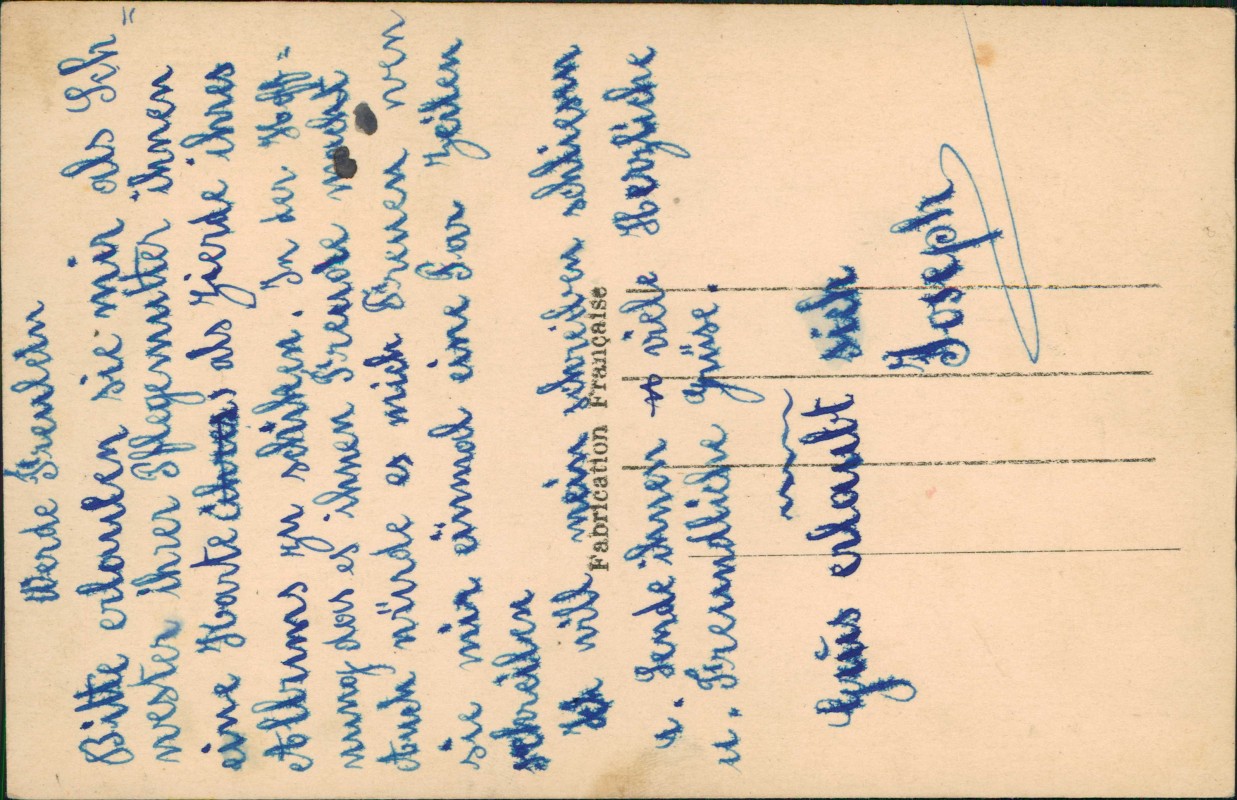 Werde Freulein
Bitte erlauben sie mir als Sch=
wester ihrer Pflegemutter ihnen
eine Karte als Zierde ihres
Albums zu schiken. In der Hoff=
nung das es ihnen Freude macht
Auch würde es mich Freuen wen
sie mir einmal eine Par Zeilen
schreiben
Ich will mein schreiben schliesen
u. Sende ihnen viele Herzliche
u. Freundliche Grüse.
Grüs erlaubt sich
Joseph
Fabrication Française